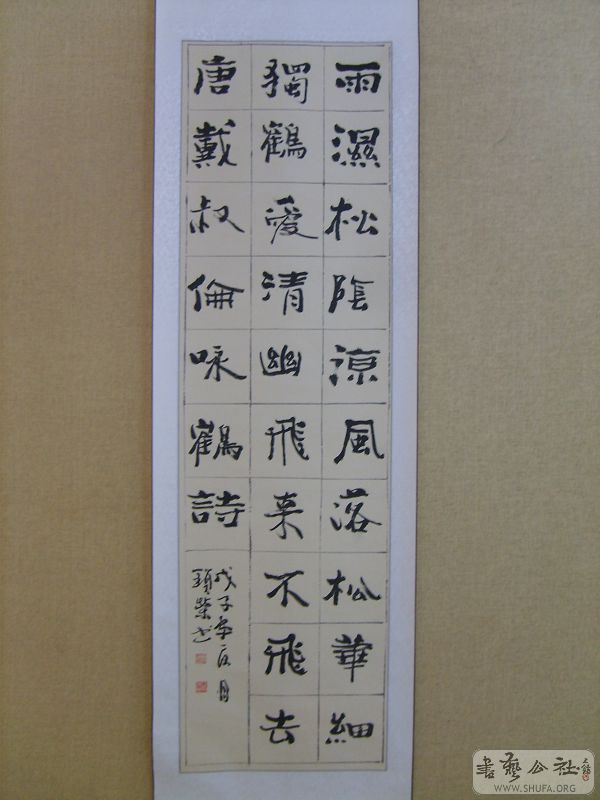 雨濕松陰涼風落松華細
獨鶴愛清幽飛来不飛去
唐戴叔倫咏鶴詩
戊子年夏月
書藝公社
WWW.SHUFA.ORG